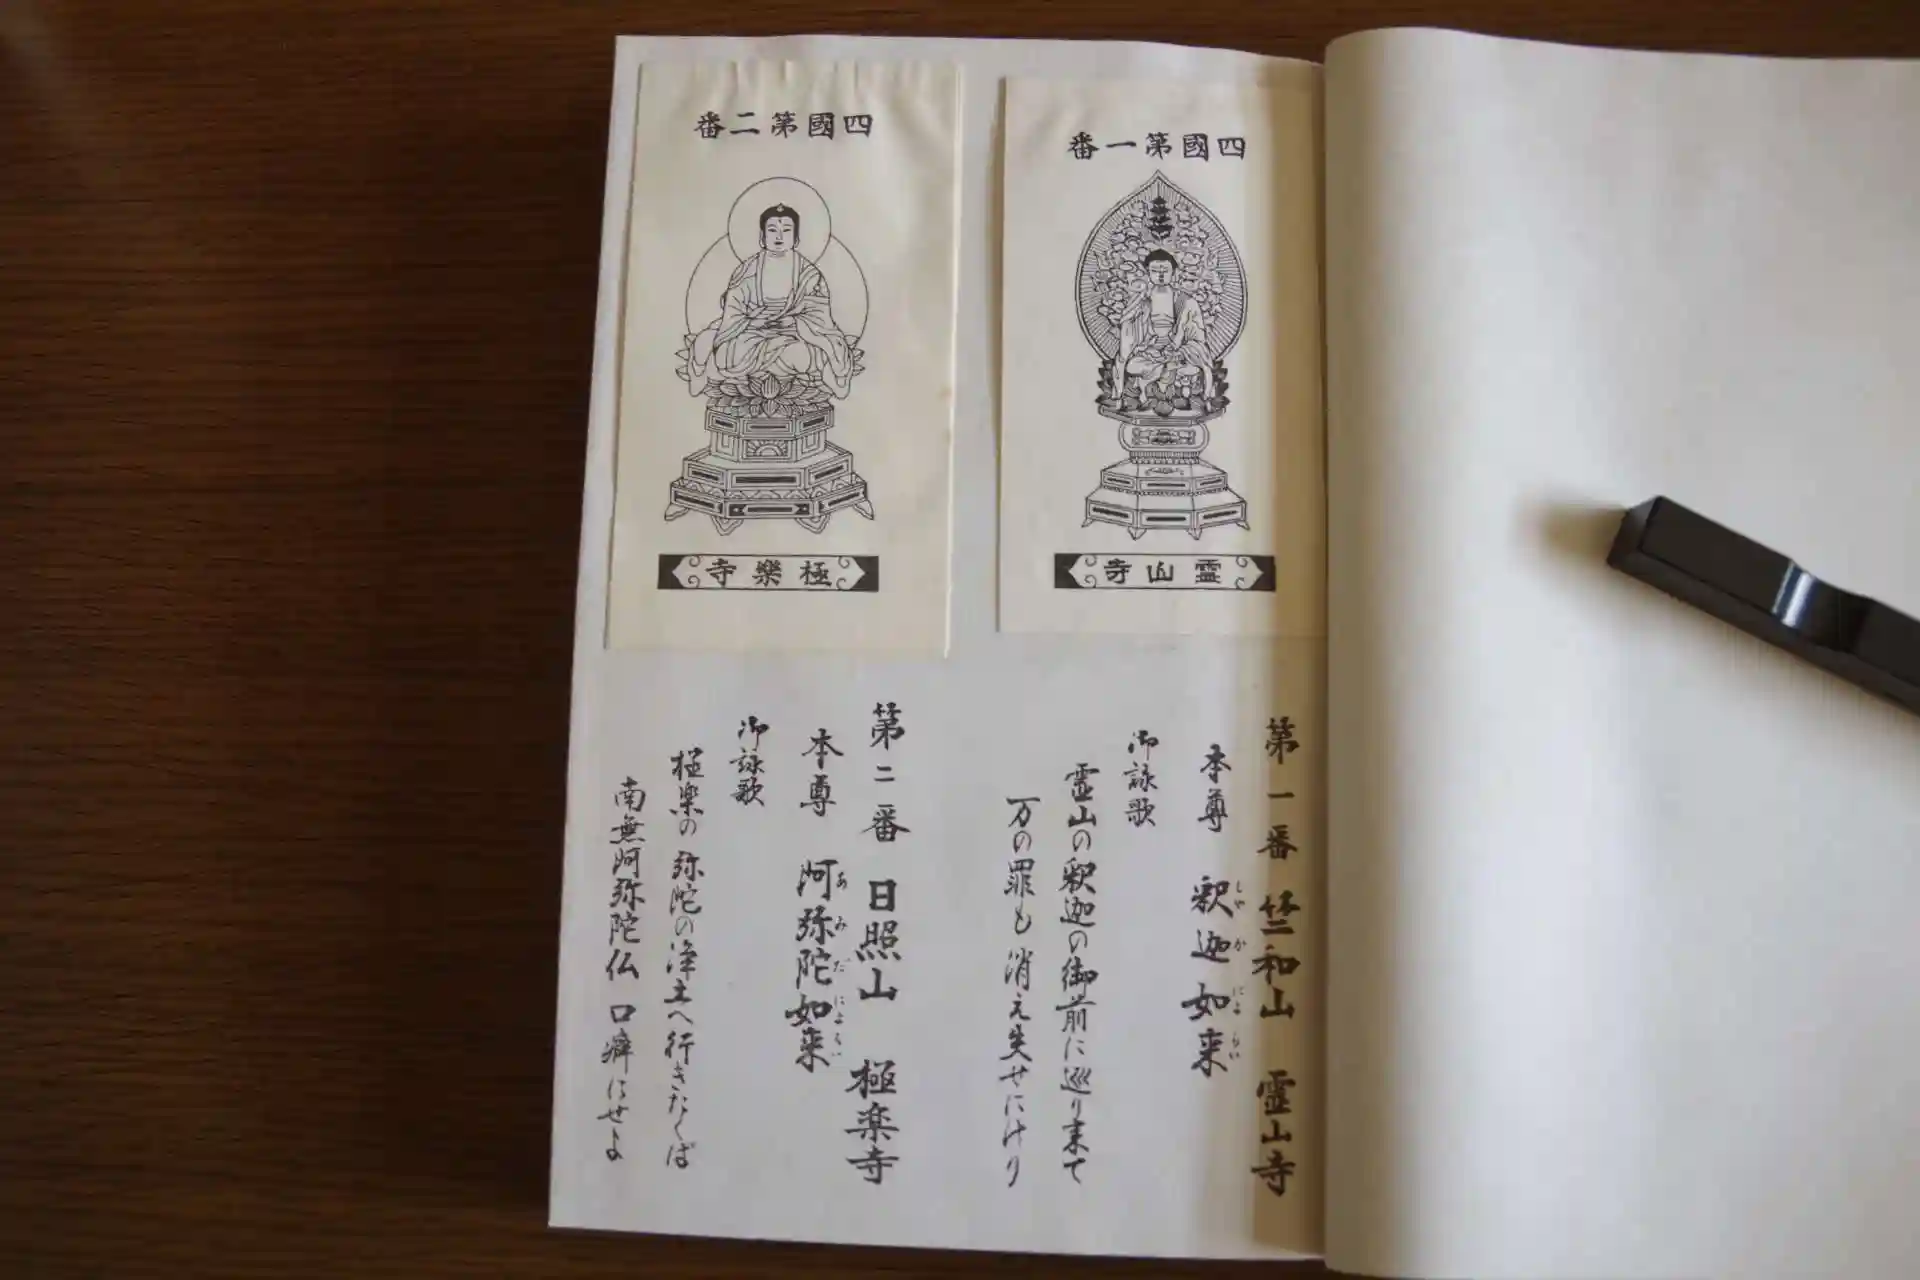 四國第一番
霊山寺
第一番 竺和山 霊山寺
本尊 釈迦如来
しゃ か にょ らい
御詠歌
霊山の釈迦の御前に巡り来て
万の罪も消え失せにけり
四國第二番
極樂寺
第二番 日照山 極楽寺
本尊 阿弥陀如来
あ み だ にょ らい
御詠歌
極楽の弥陀の浄土へ行きたくば
南無阿弥陀仏 口癖にせよ